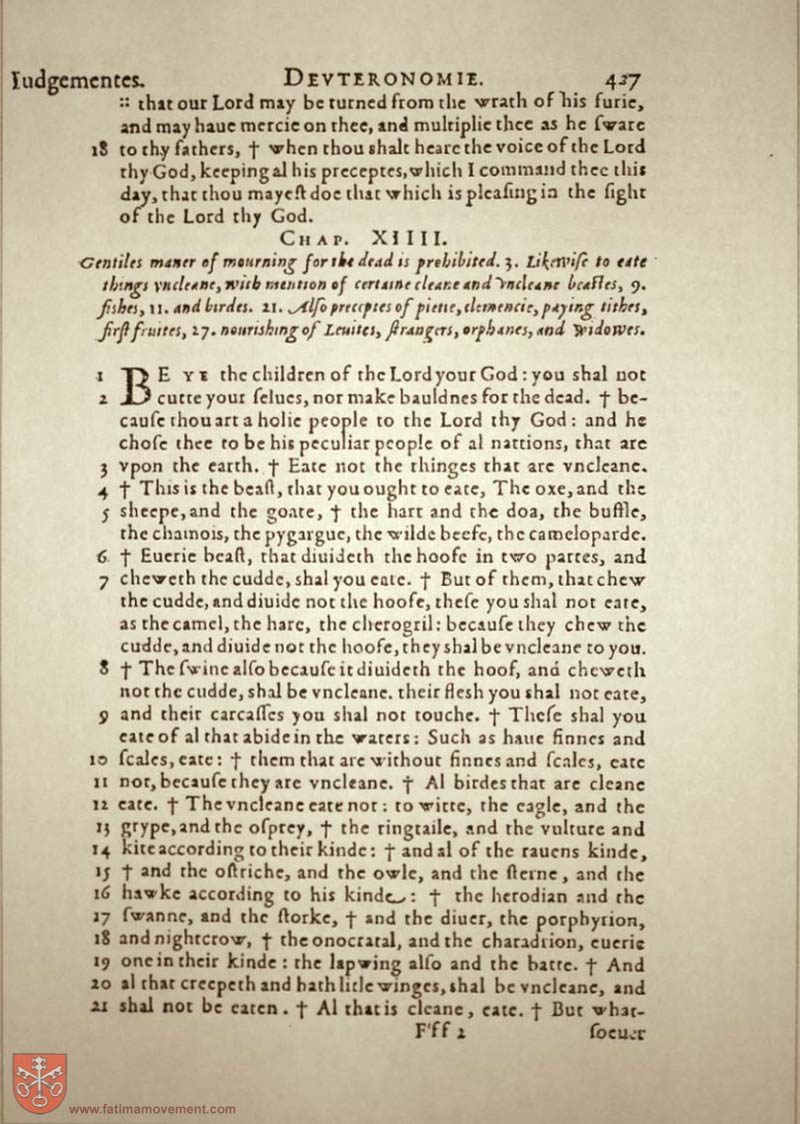 Iudgementes. DEVTERONOMIE. 427
:: that our Lord may be turned from the wrath of his furie,
and may haue mercie on thee, and multiplie thee as he ſware
18 to thy fathers, † when thou shalt heare the voice of the Lord
thy God, keeping al his preceptes, which I command thee this
day, that thou mayeſt doe that which is pleaſing in the ſight
of the Lord thy God.
CHAP. XIIII.
Gentiles maner of mourning for the dead is prohibited. 3. Likewiſe to eate
things vncleane, with mention of certaine cleane and vncleane beaſtes, 9.
fishes, 11. and birdes. 21. Alſo preceptes of pietie, clemencie, paying tithes,
firſt fruites, 27. nourishing of Leuites, ſtrangers, orphanes, and widowes.
1 BE YE the children of the Lord your God: you shal not
2 cutte your ſelues, nor make bauldnes for the dead. † be-
cauſe thou art a holie people to the Lord thy God: and he
choſe thee to be his peculiar people of al nattions, that are
3 vpon the earth. † Eate not the thinges that are vncleane.
4 † This is the beaſt, that you ought to eate, The oxe, and the
5 sheepe, and the goate, † the hart and the doa, the buffle,
the chamois, the pygargue, the wilde beefe, the cameloparde.
6. † Euerie beaſt, that diuideth the hoofe in two partes, and
7 cheweth the cudde, shal you eate. † But of them, that chew
the cudde, and diuide not the hoofe, theſe you shal not eate,
as the camel, the hare, the cherogril: becauſe they chew the
cudde, and diuide not the hoofe, they shal be vncleane to you.
8 † The ſwine alſo becauſe it diuideth the hoof, and cheweth
not the cudde, shal be vncleane. their flesh you shal not eate,
9 and their carcaſſes you shal not touche. † Theſe shal you
eate of al that abide in the waters: Such as haue finnes and
10 ſcales, eate: † them that are without finnes and ſcales, eate
11 not, becauſe they are vncleane. † Al birdes that are cleane
12 eate. † The vncleane eate not: to witte, the eagle, and the
13 grype, and the oſprey, † the ringtaile, and the vulture and
14 kite according to their kinde: † and al of the rauens kinde,
15 † and the oſtriche, and the owle, and the ſterne, and the
16 hawke according to his kinde: † the herodian and the
17 ſwanne, and the ſtorke, † and the diuer, the porphyrion,
18 and nightcrow, † the onocratal, and the charadrion, euerie
19 one in their kinde: the lapwing alſo and the batte. † And
20 al that creepeth and hath litle winges, shal be vncleane, and
21 shal not be eaten. † Al that is cleane, eate. † But what-
Fff 2 ſoeuer
www.fatimamovement.com